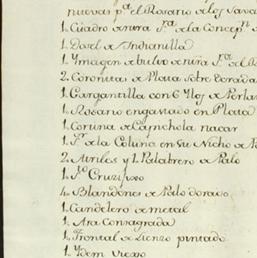 nuevas pa. el Rosario de los Sava
1. Cuadro de nra Sra. de la Concepn.
1. Dosel de Indianilla
1. Ymagen de bulto de nra Sra. de
2. Coronitas de Plata sobre
1. Gargantilla con 6 Ylos de Perlas
1. Rosario engastado en Plata
1. Corona de Capichola nacar
1. Sr. de la Coluna en su Nicho de
2. Atriles y 1. Palabrero de Palo
1. Sto. Cruzifixo
4. Blandones de Palo dorado
1. Candelero de metal
1. Ara Consagrada
1. Frontal de Lienzo pintado
1. Ydem Viejo